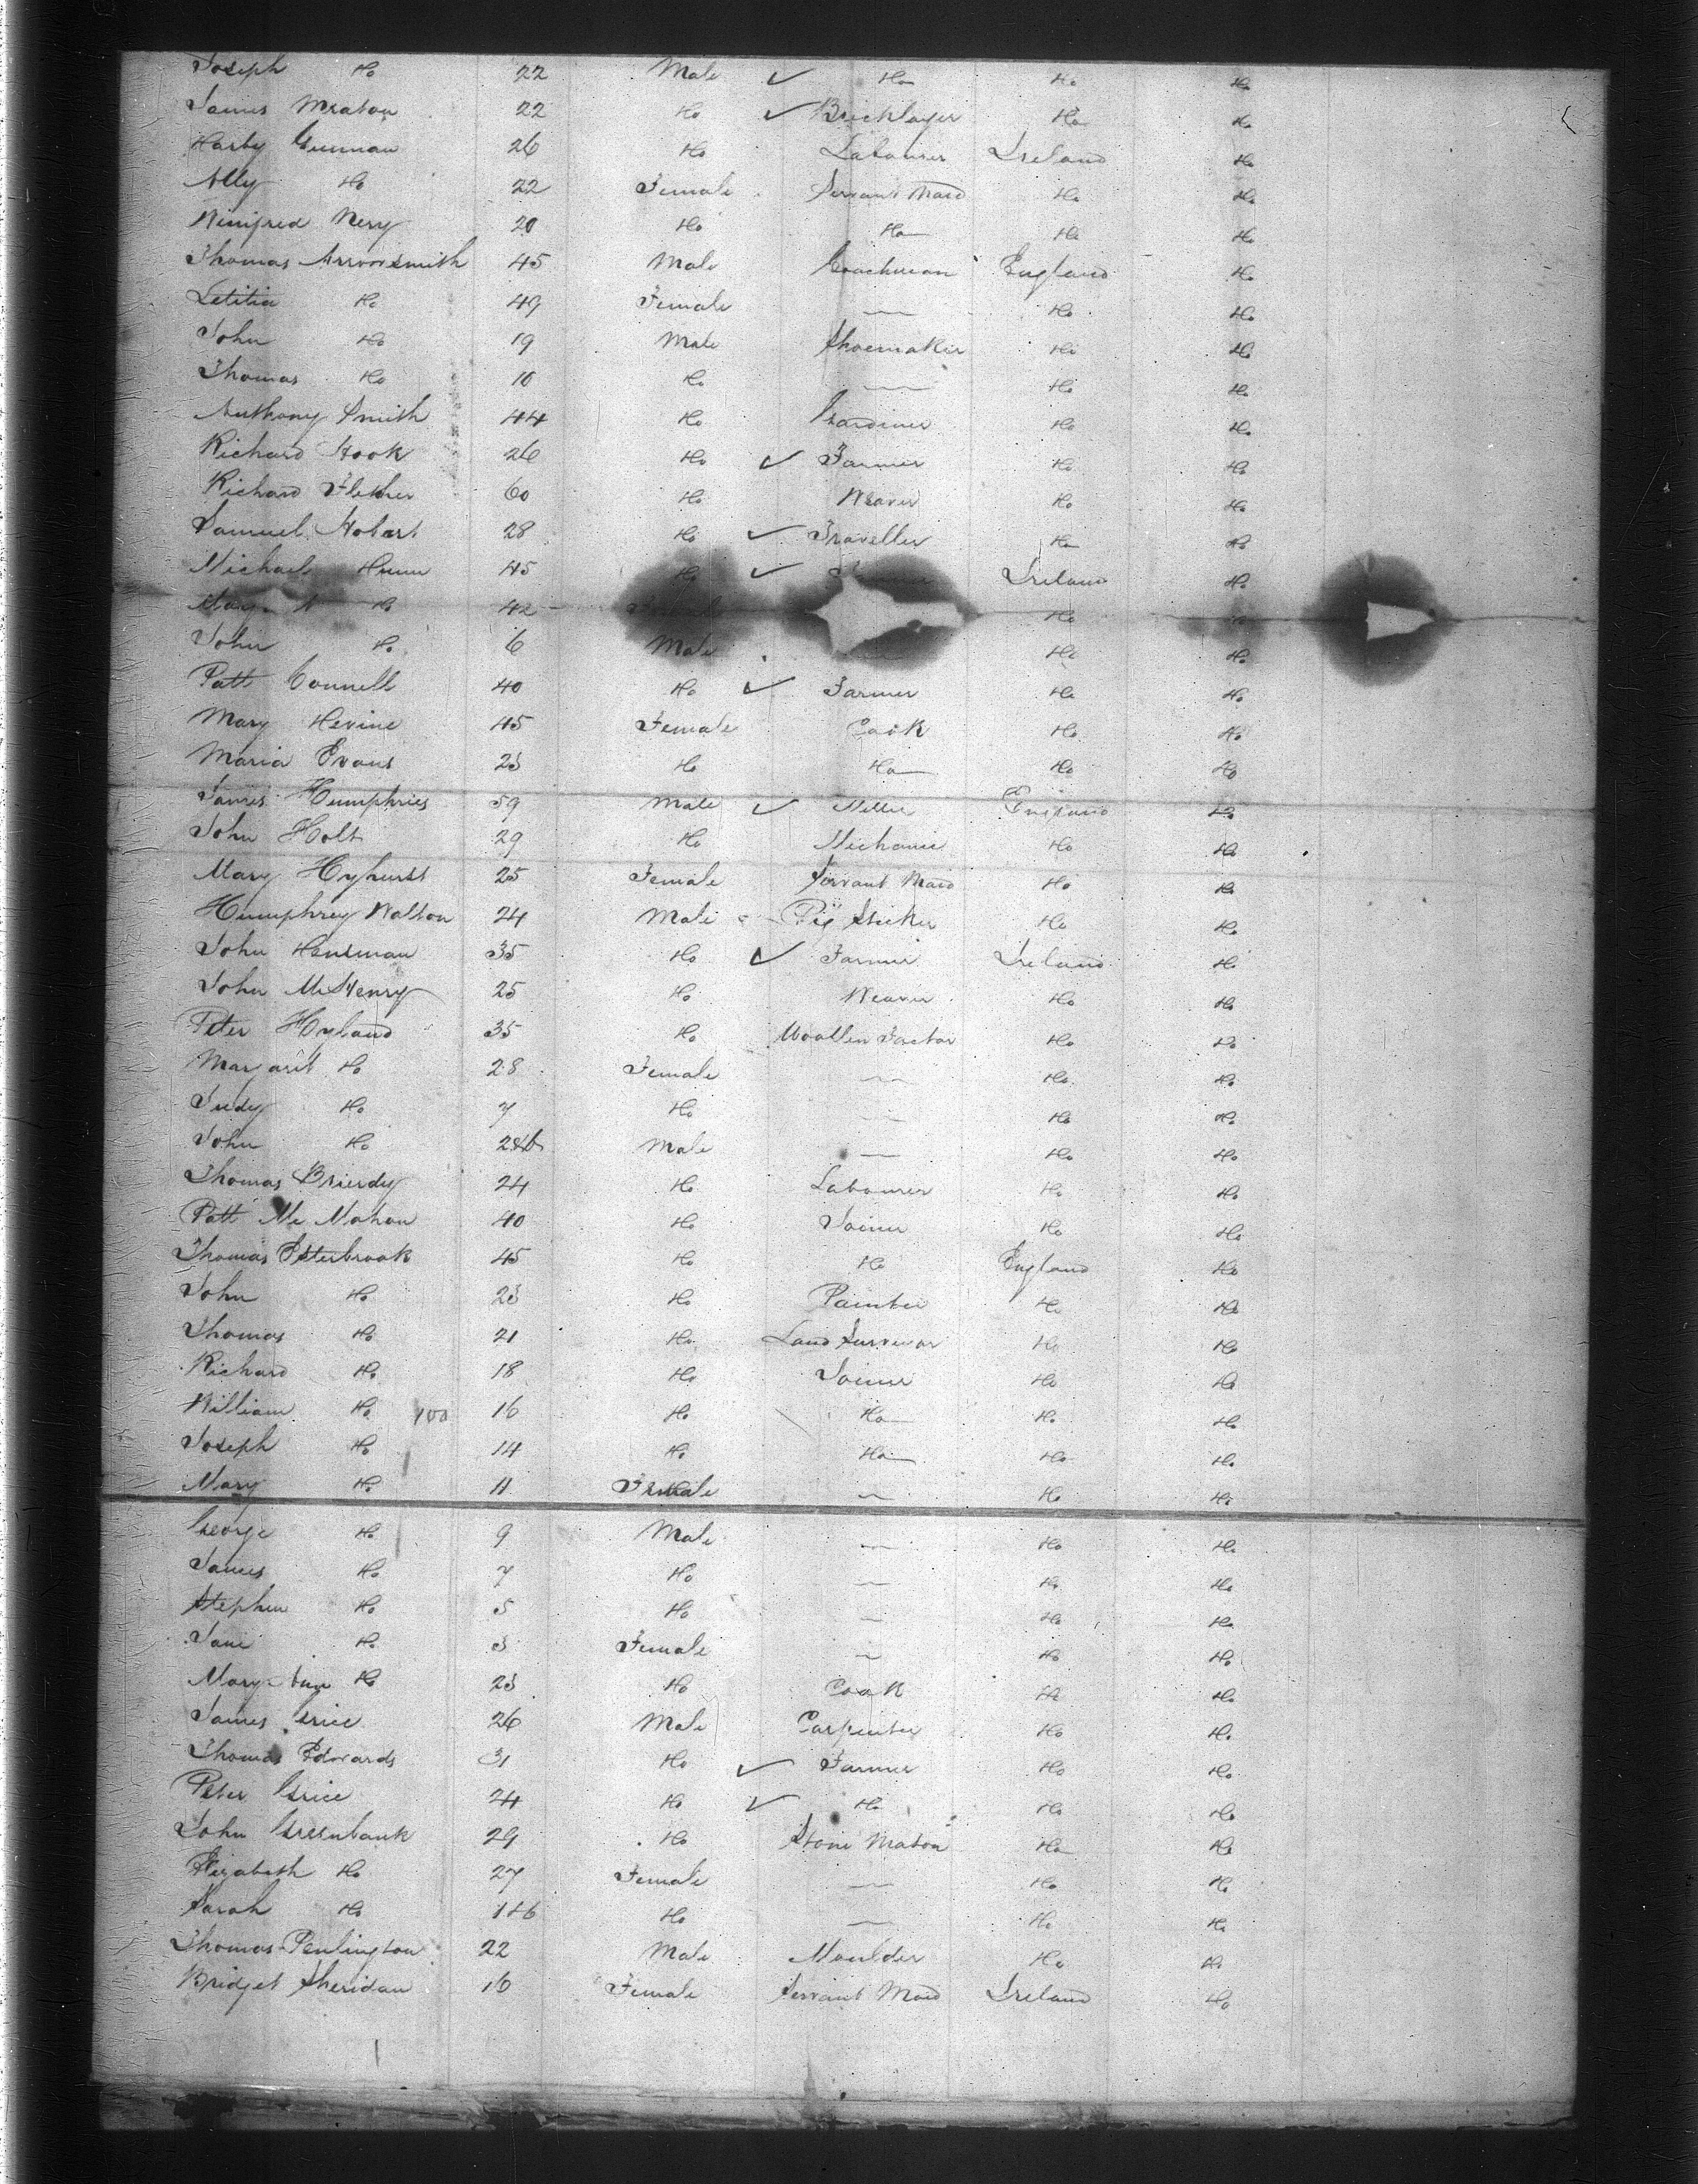 Joseph Do 22 Male ✓ Do Do Do
James Do 22 Do ✓ Bricklayer Do Do
Harby 26 Do Labourer Ireland Do
Ally Do 22 Female Servant Maid Do Do
Winifred Nery 20 Do Do Do Do
Thomas Arrowsmith 45 Male Coachman England Do
Letitia Do 49 Female — Do Do
John Do 19 Male Shoemaker Do Do
Thomas Do 10 Do — Do Do
Anthony Smith 44 Do Gardiner Do Do
Richard Hook 26 Do ✓ Farmer Do Do
Richard Fletcher 60 Do Weaver Do Do
Samuel Hobart 28 Do ✓ Traveller Do Do
Michael 45 Do ✓ Ireland Do
Do 42 Do
John Do 6 Male Do Do
Patt Connell 40 Do ✓ Farmer Do Do
Mary Hevine 45 Female Cook Do Do
Maria Evans 23 Do Do Do Do
James Humphries 59 Male ✓ England Do
John Holt 29 Do Mechanic Do Do
Mary Hyhurst 25 Female Servant Maid Do Do
Humphrey Walton 24 Male Pig Sticker Do Do
John Hensman 35 Do ✓ Farmer Ireland Do
John McHenry 25 Do Weaver Do Do
Peter Hyland 35 Do Woollen Factor Do Do
Margaret Do 28 Female — Do Do
Judy Do 7 Do — Do Do
John Do Male — Do Do
Thomas Brierdy 24 Do Labourer Do Do
Patt Mc Mahon 40 Do Joiner Do Do
Thomas Esterbrook 45 Do Do England Do
John Do 23 Do Painter Do Do
Thomas Do 21 Do Land Surveyor Do Do
Richard Do 18 Do Joiner Do Do
William Do 100 16 Do Do Do Do
Joseph Do 14 Do Do Do Do
Mary Do 11 Female — Do Do
George Do 9 Male — Do Do
James Do 7 Do — Do Do
Stephen Do 5 Do — Do Do
Jane Do 3 Female — Do Do
Mary Ann Do 23 Do Cook Do Do
James Grice 26 Male Carpenter Do Do
Thomas Edwards 31 Do ✓ Farmer Do Do
Peter Grice 24 Do ✓ Do Do Do
John Greenbank 29 Do Stone Mason Do Do
Elizabeth Do 27 Female — Do Do
Sarah Do Do — Do Do
Thomas Penlington 22 Male Moulder Do Do
Bridget Sheridan 16 Female Servant Maid Ireland Do